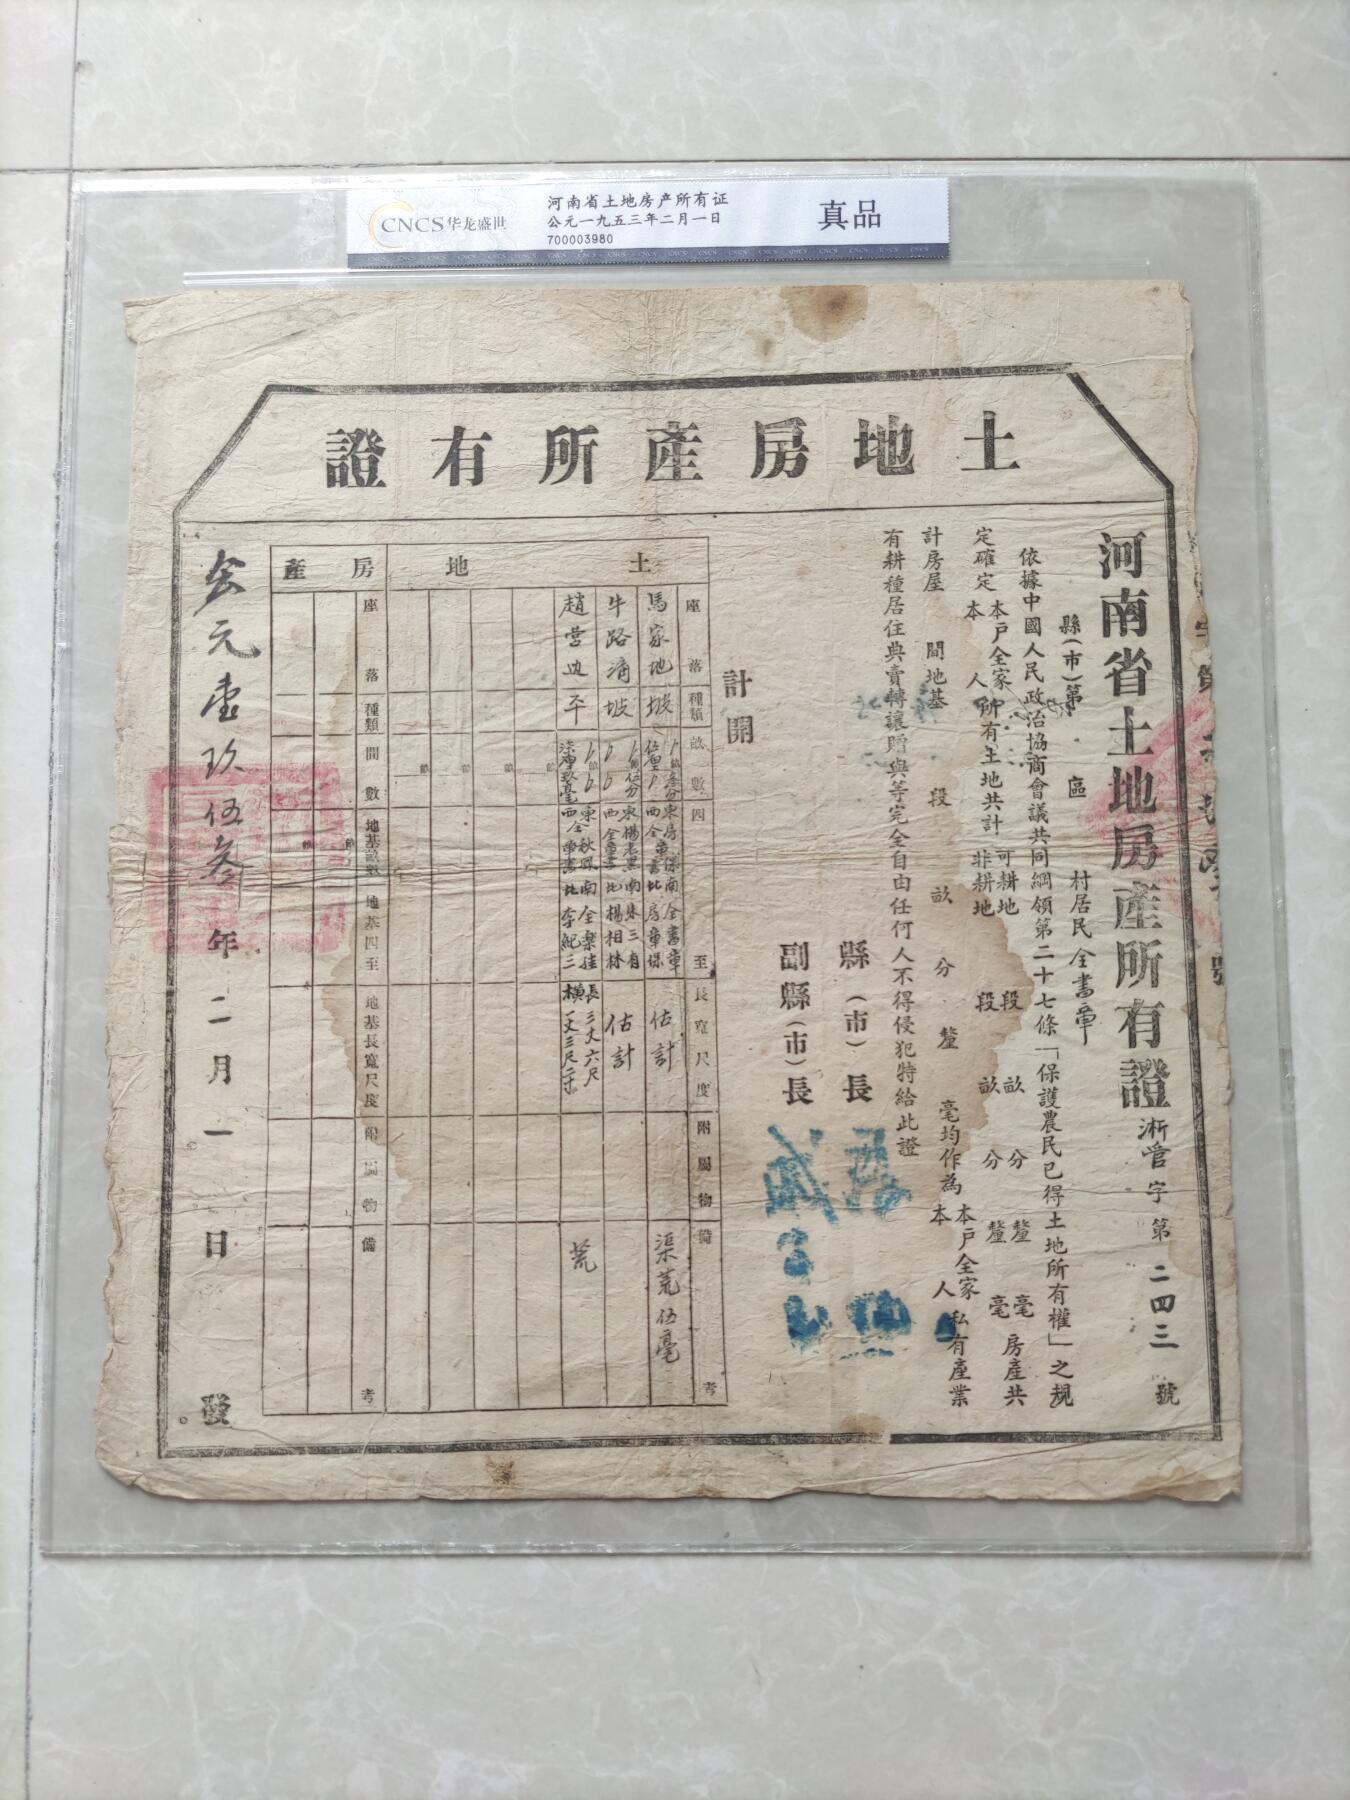 CNCS华龙盛世
河南省土地房产所有证
公元一九五三年二月一日
700003980
真品
土地房產所有證
河南省土地房產所有證
淅管字第二四三號
縣(市)第 區 村居民全書章
依據中國人民政治協商會議共同綱領第二十七條「保護農民已得土地所有權」之規
定確定本戶全家本人所有土地共計可耕地 段 畝 分 釐 毫非耕地 段 畝 分 釐 毫房產共
計房屋 間地基 段 畝 分 釐 毫均作為本戶全家本人私有產業
有耕種居住典賣轉讓贈與等完全自由任何人不得侵犯特給此證
縣(市)長
副縣(市)長
計開
土地
座落 種類 畝數 四至 長寬尺度 附屬物 備考
馬家地 坡 估計 渠荒伍毫
牛路溝 坡 東楊老黑南朱三有西全書章北楊相林 估計
趙營边 平 李紀三 長三丈六尺橫一丈三尺二寸 荒
房產
座落 種類 間數 地基畝數 地基四至 地基長寬尺度 附屬物 備考
公元壹玖伍叁年二月一日發